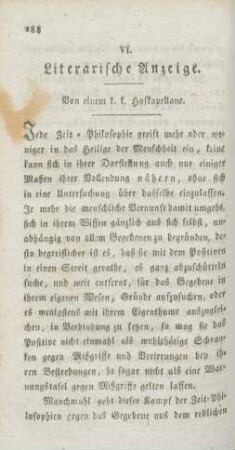 288
VI.
Literarische Anzeige.
Von einem k. k. Hofkapellane.
Jede Zeit-Philosophie greift mehr oder we-
niger in das Heilige der Menschheit ein, keine
kann sich in ihrer Darstellung auch nur einiger
Maßen ihrer Vollendung nähern, ohne sich
in eine Untersuchung über dasselbe einzulassen.
Je mehr die menschliche Vernunft damit umgeht,
sich in ihrem Wissen gänzlich aus sich selbst, un-
abhängig von allem Gegebenen zu begründen, de-
sto begreiflicher ist es, daß sie mit dem Positiven
in einen Streit gerathe, es ganz abzuschütteln
suche, und weit entfernt, für das Gegebene in
ihrem eigenen Wesen, Gründe aufzusuchen, oder
es wenigstens mit ihrem Eigenthume auszuglei-
chen, in Verbindung zu setzen, so mag sie das
Positive nicht einmahl als wohlthätige Schran-
ken gegen Mißgriffe und Verirrungen bey ih-
ren Bestrebungen, ja sogar nicht als eine War-
nungstafel gegen Mißgriffe gelten lassen.
Manchmahl geht dieser Kampf der Zeit-Phi-
losophien gegen das Gegebene aus dem redlichen